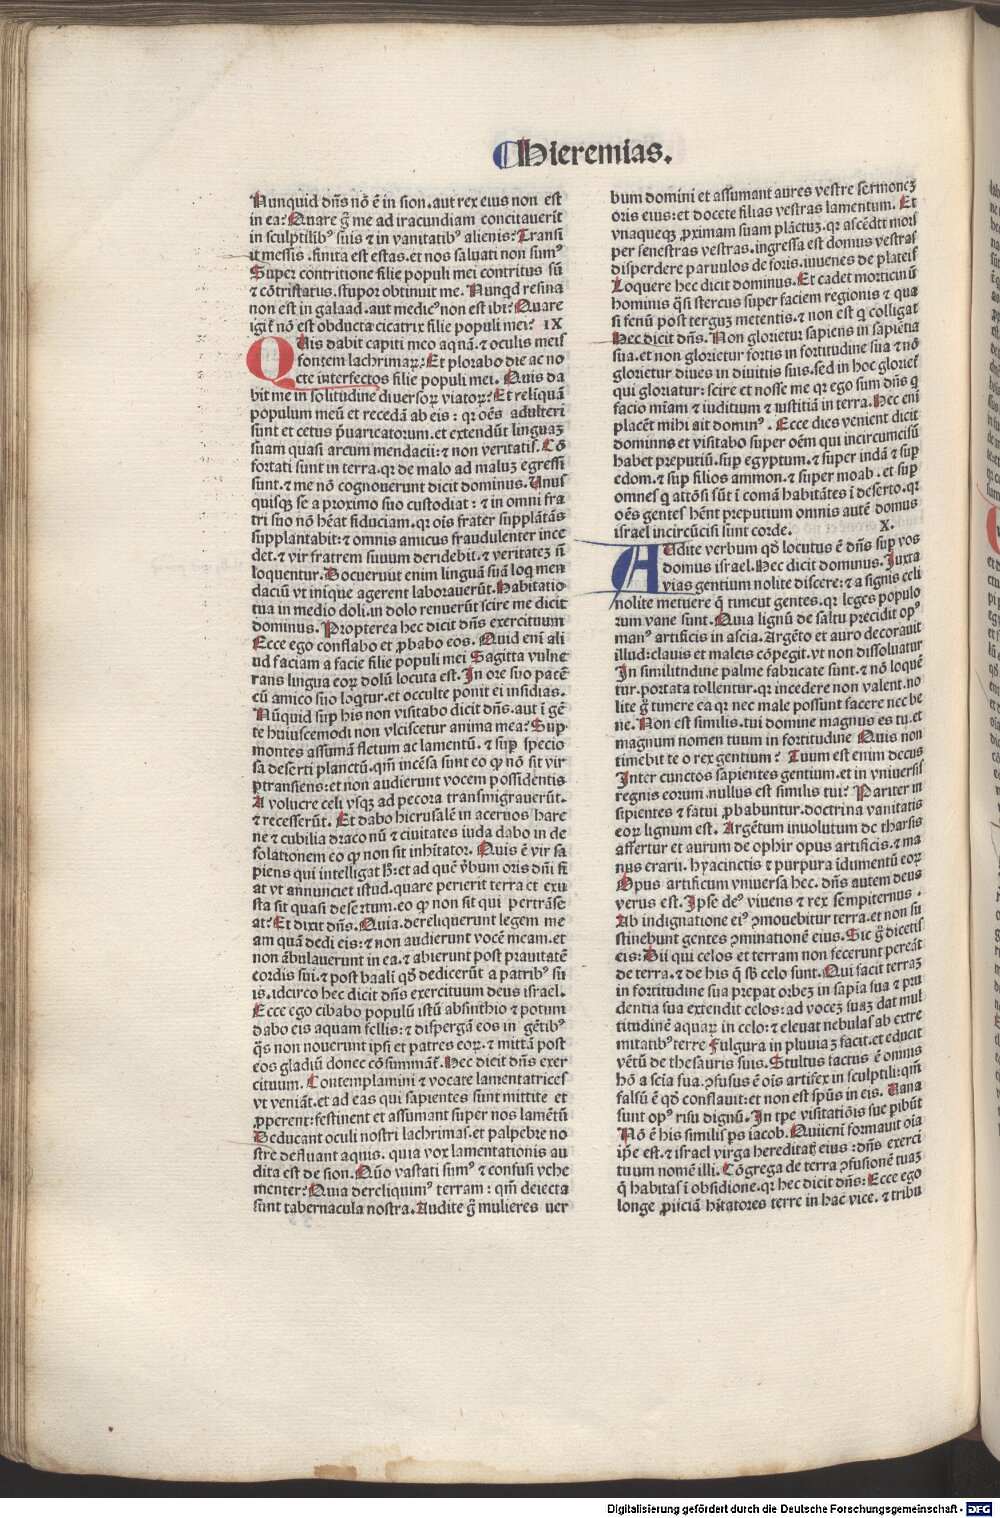 Hieremias.
Nunquid dñs nõ ē in sion.aut rex eius non est
in ea? Quare g̃ me ad iracundiam concitauerit
in sculptilibꝰ suis ⁊ in vanitatibꝰ alienis? Transi
it messis .finita est estas.et nos saluati non sumꝰ
Super contritione filie populi mei contritus sũ
⁊ cõtristatus.stupor obtinuit me. Nunqd resina
non est in galaad.aut medicꝰ non est ibi? Quare
igit̃ nõ est obducta cicatrix filie populi mei? IX
QUis dabit capiti meo aquã.⁊ oculis meis
fontem lachrimaꝝ? Et plorabo die ac no
cte interfectos filie populi mei. Quis da
bit me in solitudine diuersoꝝ viatoꝝ? Et reliquã
populum meũ et recedã ab eis : qꝛ oẽs adulteri
sunt et cetus p̃uaricatorum.et extendũt linguaꝫ
suam quasi arcum mendacii: ⁊ non veritatis. Cõ
fortati sunt in terra.qꝛ de malo ad maluꝫ egressi
sunt.⁊ me nõ cognouerunt dicit dominus. Unus
quisqꝫ se a proximo suo custodiat : ⁊ in omni fra
tri suo nõ hẽat fiduciam.qꝛ oĩs frater supplãtãs
supplantabit: ⁊ omnis amicus fraudulenter ince
det.⁊ vir fratrem suuum deridebit.⁊ veritateꝫ ñ
loquentur. Docuerunt enim linguã suã loq̃ men
daciũ vt inique agerent laborauerũt. Habitatio
tua in medio doli.in dolo renuerũt scire me dicit
dominus. Propterea hec dicit dñs exercituum
Ecce ego conflabo et ꝓbabo eos. Quid enĩ ali
ud faciam a facie filie populi mei Sagitta vulne
rans lingua eoꝝ dolũ locuta est. In ore suo pacẽ
cũ amico suo loqtur.et occulte ponit ei insidias.
Nũquid suꝑ his non visitabo dicit dñs.aut ĩ gẽ
te huiuscemodi non vlciscetur anima mea? Suꝑ
montes assumã fletum ac lamentũ. ⁊ suꝑ specio
sa deserti planctũ.qm̃ incẽsa sunt eo ꝙ nõ sit vir
ꝑtransiens: et non audierunt vocem possidentis
A volucre celi vsqꝫ ad pecora transmigrauerũt.
⁊ recesserũt. Et dabo hierusalẽ in aceruos hare
ne ⁊ cubilia draco nũ ⁊ ciuitates iuda dabo in de
solationem eo ꝙ non sit inhĩtator. Quis ẽ vir sa
piens qui intelligat h̃: et ad quẽ v̈bum oris dñi fĩ
at vt annunciet istud.quare perierit terra et exu
sta sit quasi desertum.eo ꝙ non sit qui pertrãse
at? Et dixit dñs. Quia.dereliquerunt legem me
am quã dedi eis: ⁊ non audierunt vocẽ meam.et
non ãbulauerunt in ea.⁊ abierunt post prauitatẽ
cordis sui.⁊ post baali qð dedicerũt a patribꝰ su
is.idcirco hec dicit dñs exercituum deus israel.
Ecce ego cibabo populũ istũ absinthio ⁊ potum
dabo eis aquam fellis: ⁊ dispergã eos in gẽtibꝰ
q̃s non nouerunt ipsi et patres eoꝝ.⁊ mittã post
eos gladiũ donec cõsummant̃. Hec dicit dñs exer
cituum. Contemplamini ⁊ vocate lamentatrices
vt veniãt.et ad eas qui sapientes sunt mittite et
ꝓperent: festinent et assumant super nos lamẽtũ
Deducant oculi nostri lachrimas.et palpebre no
stre defluant aquis. quia vox lamentationis au
dita est de sion. Quõ vastati sumꝰ ⁊ confusi vehe
menter? Quia dereliquimꝰ terram : qm̃ deiecta
sunt tabernacula nostra. Audite g̃ mulieres uer
bum domini et assumant aures vestre sermoneꝫ
oris eius: et docete filias vestras lamentum. Et
vnaqueqꝫ ꝓximam suam plãctuꝫ.qꝛ ascẽdit mors
per fenestras vestras.ingressa est domus vestras
disperdere paruulos de foris.iuuenes de plateis
Loquere hec dicit dominus. Et cadet morticinũ
hominis q̃si stercus super faciem regionis ⁊ qua
si fenũ post terguꝫ metentis.⁊ non est q̃ colligat
Hec dicit dñs. Non glorietur sapiens in sapiẽtia
sua.et non glorietur fortis in fortitudine sua ⁊ nõ
glorietur diues in diuitiis suis.sed in hoc glorieť
qui gloriatur: scire et nosse me qꝛ ego sum dñs q̃
facio mĩam ⁊ iuditium ⁊ iustitiã in terra. Hec enĩ
placẽt mihi ait dominꝰ . Ecce dies venient dicit
dominns et visitabo super oẽm qui incircumcisũ
habet preputiũ.suꝑ egyptum.⁊ super iudã ⁊ suꝑ
edom.⁊ suꝑ filios ammon.⁊ super moab.et suꝑ
omnes q̃ attõsi sũt ĩ comã habitãtes ĩ deserto.qꝛ
oẽs gentes hẽnt preputium omnis autẽ domus
israel incircũcisi sunt corde. X.
AUdite verbum qð locutus ẽ dñs suꝑ vos
domus israel. Hec dicit dominus. Juxta
vias gentium nolite discere: ⁊ a signis celi
nolite metuere q̃ timeut gentes.qꝛ leges populo
rum vane sunt. Quia lignũ de saltu precidit opꝰ
manꝰ artificis in ascia. Argẽto et auro decorauit
illud: clauis et maleis cõpegit.vt non dissoluatur
In similitndine palme fabricate sunt.⁊ nõ loquẽ
tur.portata tollentur.qꝛ incedere non valent.no
lite g̃ timere ea qꝛ nec male possunt facere nec be
ne. Non est similis.tui domine magnus es tu.et
magnum nomen tuum in fortitudine Quis non
timebit te o rex gentium? Tuum est enim decus
Inter cunctos sapientes gentium.et in vniuersis
regnis eorum nullus est similis tui? Pariter in
sipientes ⁊ fatui ꝓbabuntur.doctrina vanitatis
eoꝝ lignum est. Argẽtum inuolutum de tharsis
affertur et aurum de ophir opus artificis.⁊ ma
nus erarii. hyacinctis ⁊ purpura ĩdumentũ eoꝝ
Opus artificum vniuersa hec. dñs autem deus
verus est. Ipse deꝰ viuens ⁊ rex sempiternus .
Ab indignatione eiꝰ ꝯmouebitur terra.et non su
stinebunt gentes ꝯminationẽ eius. Sic g̃ dicetis
eis: Dii qui celos et terram non fecerunt pereãt
de terra.⁊ de his q̃ sb̃ celo sunt. Qui facit terraꝫ
in fortitudine sua prepat orbeꝫ in sapĩa sua ⁊ pru
dentia sua extendit celos: ad voceꝫ suaꝫ dat mul
titudinẽ aquaꝝ in celo: ⁊ eleuat nebulas ab extre
mitatibꝰ terre Fulgura in pluuiaꝫ facit.et educit
vẽtũ de thesauris suis. Stultus factus ẽ omnis
hõ a scia sua.ꝯfusus ẽ oĩs artifex in sculptili: qm̃
falsũ ẽ qð conflauit: et non est spũs in eis. Uana
sunt opꝰ risu dignũ. In tpe visitatiõis sue pibũt
Nõ ẽ his similis ps iacob. Qui enĩ formauit oĩa
ip̃e est.⁊ israel virga hereditat̃ eius : dñs exerci
tuum nomẽ illi. Cõgrega de terra ꝯfusionẽ tuaꝫ
q̃ habitas ĩ obsidione.qꝛ hec dicit dñs: Ecce ego
longe ꝓiiciã hĩtatores terre in hac vice. ⁊ tribu
Digitalisierung gefördert durch die Deutsche Forschungsgemeinschaft - DFG